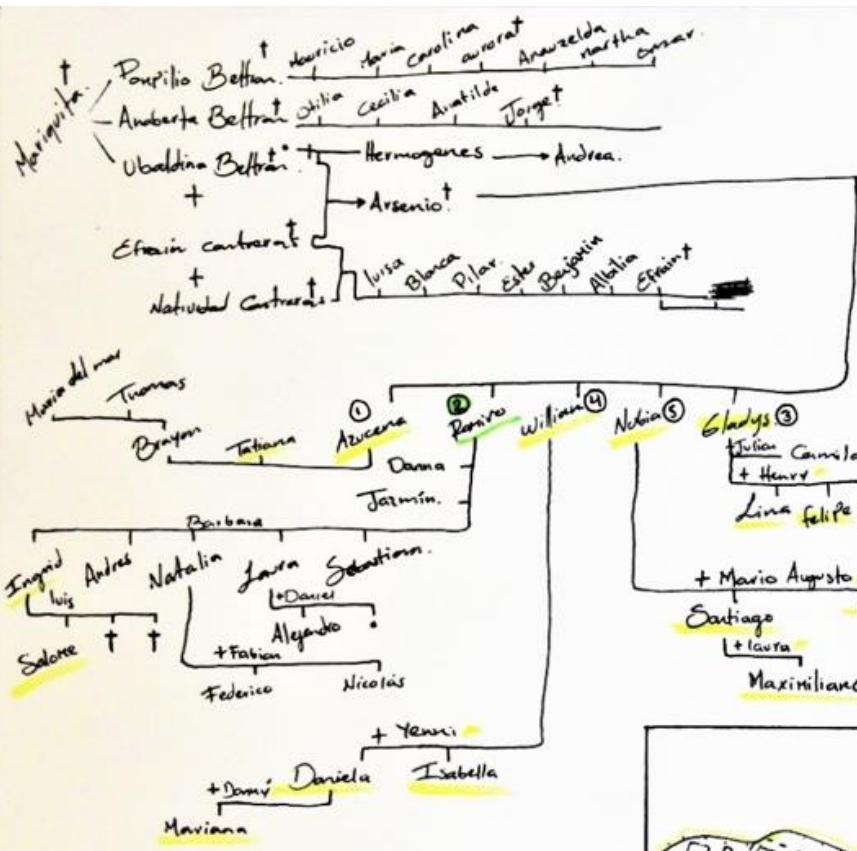 Mariquita. †
Pompilio Beltran. † Mauricio Maria Carolina aurora† Anauzelda martha Omar.
Anaberta Beltran † Otilia Cecilia Amatilde Jorge†
Ubaldina Beltran. † Hermogenes Andrea.
+
Arsenio. †
Efrain Contreras †
+
Natividad Contreras † luisa Blanca Pilar. Ester Benjamin Efrain †
Maria del mar Thomas
Brayan Tatiana
① Azucena ② Ramiro William ④ Nubia ⑤ Gladys. ③
Danna
Jazmín.
+Julian Camilo
+ Henry
Lina felipe
Barbara
Ingrid Andres Natalia Laura Sebastian.
luis
Salome † †
+Daniel
Alejandro
+Fabian
Federico Nicolás
+ Mario Augusto
Santiago
+ laura
Maximiliano
+ Yenni
Daniela Isabella
+Danny
Mariana